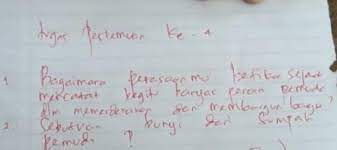 tugas pertemuan ke - 4
1 Bagaimana perasaanmu ketika sejarah
mencatat begitu banyak peran pemuda
dlm memerdekakan dan membangun bangsa?
2. Sebutkan bunyi dari Sumpah
pemuda ?